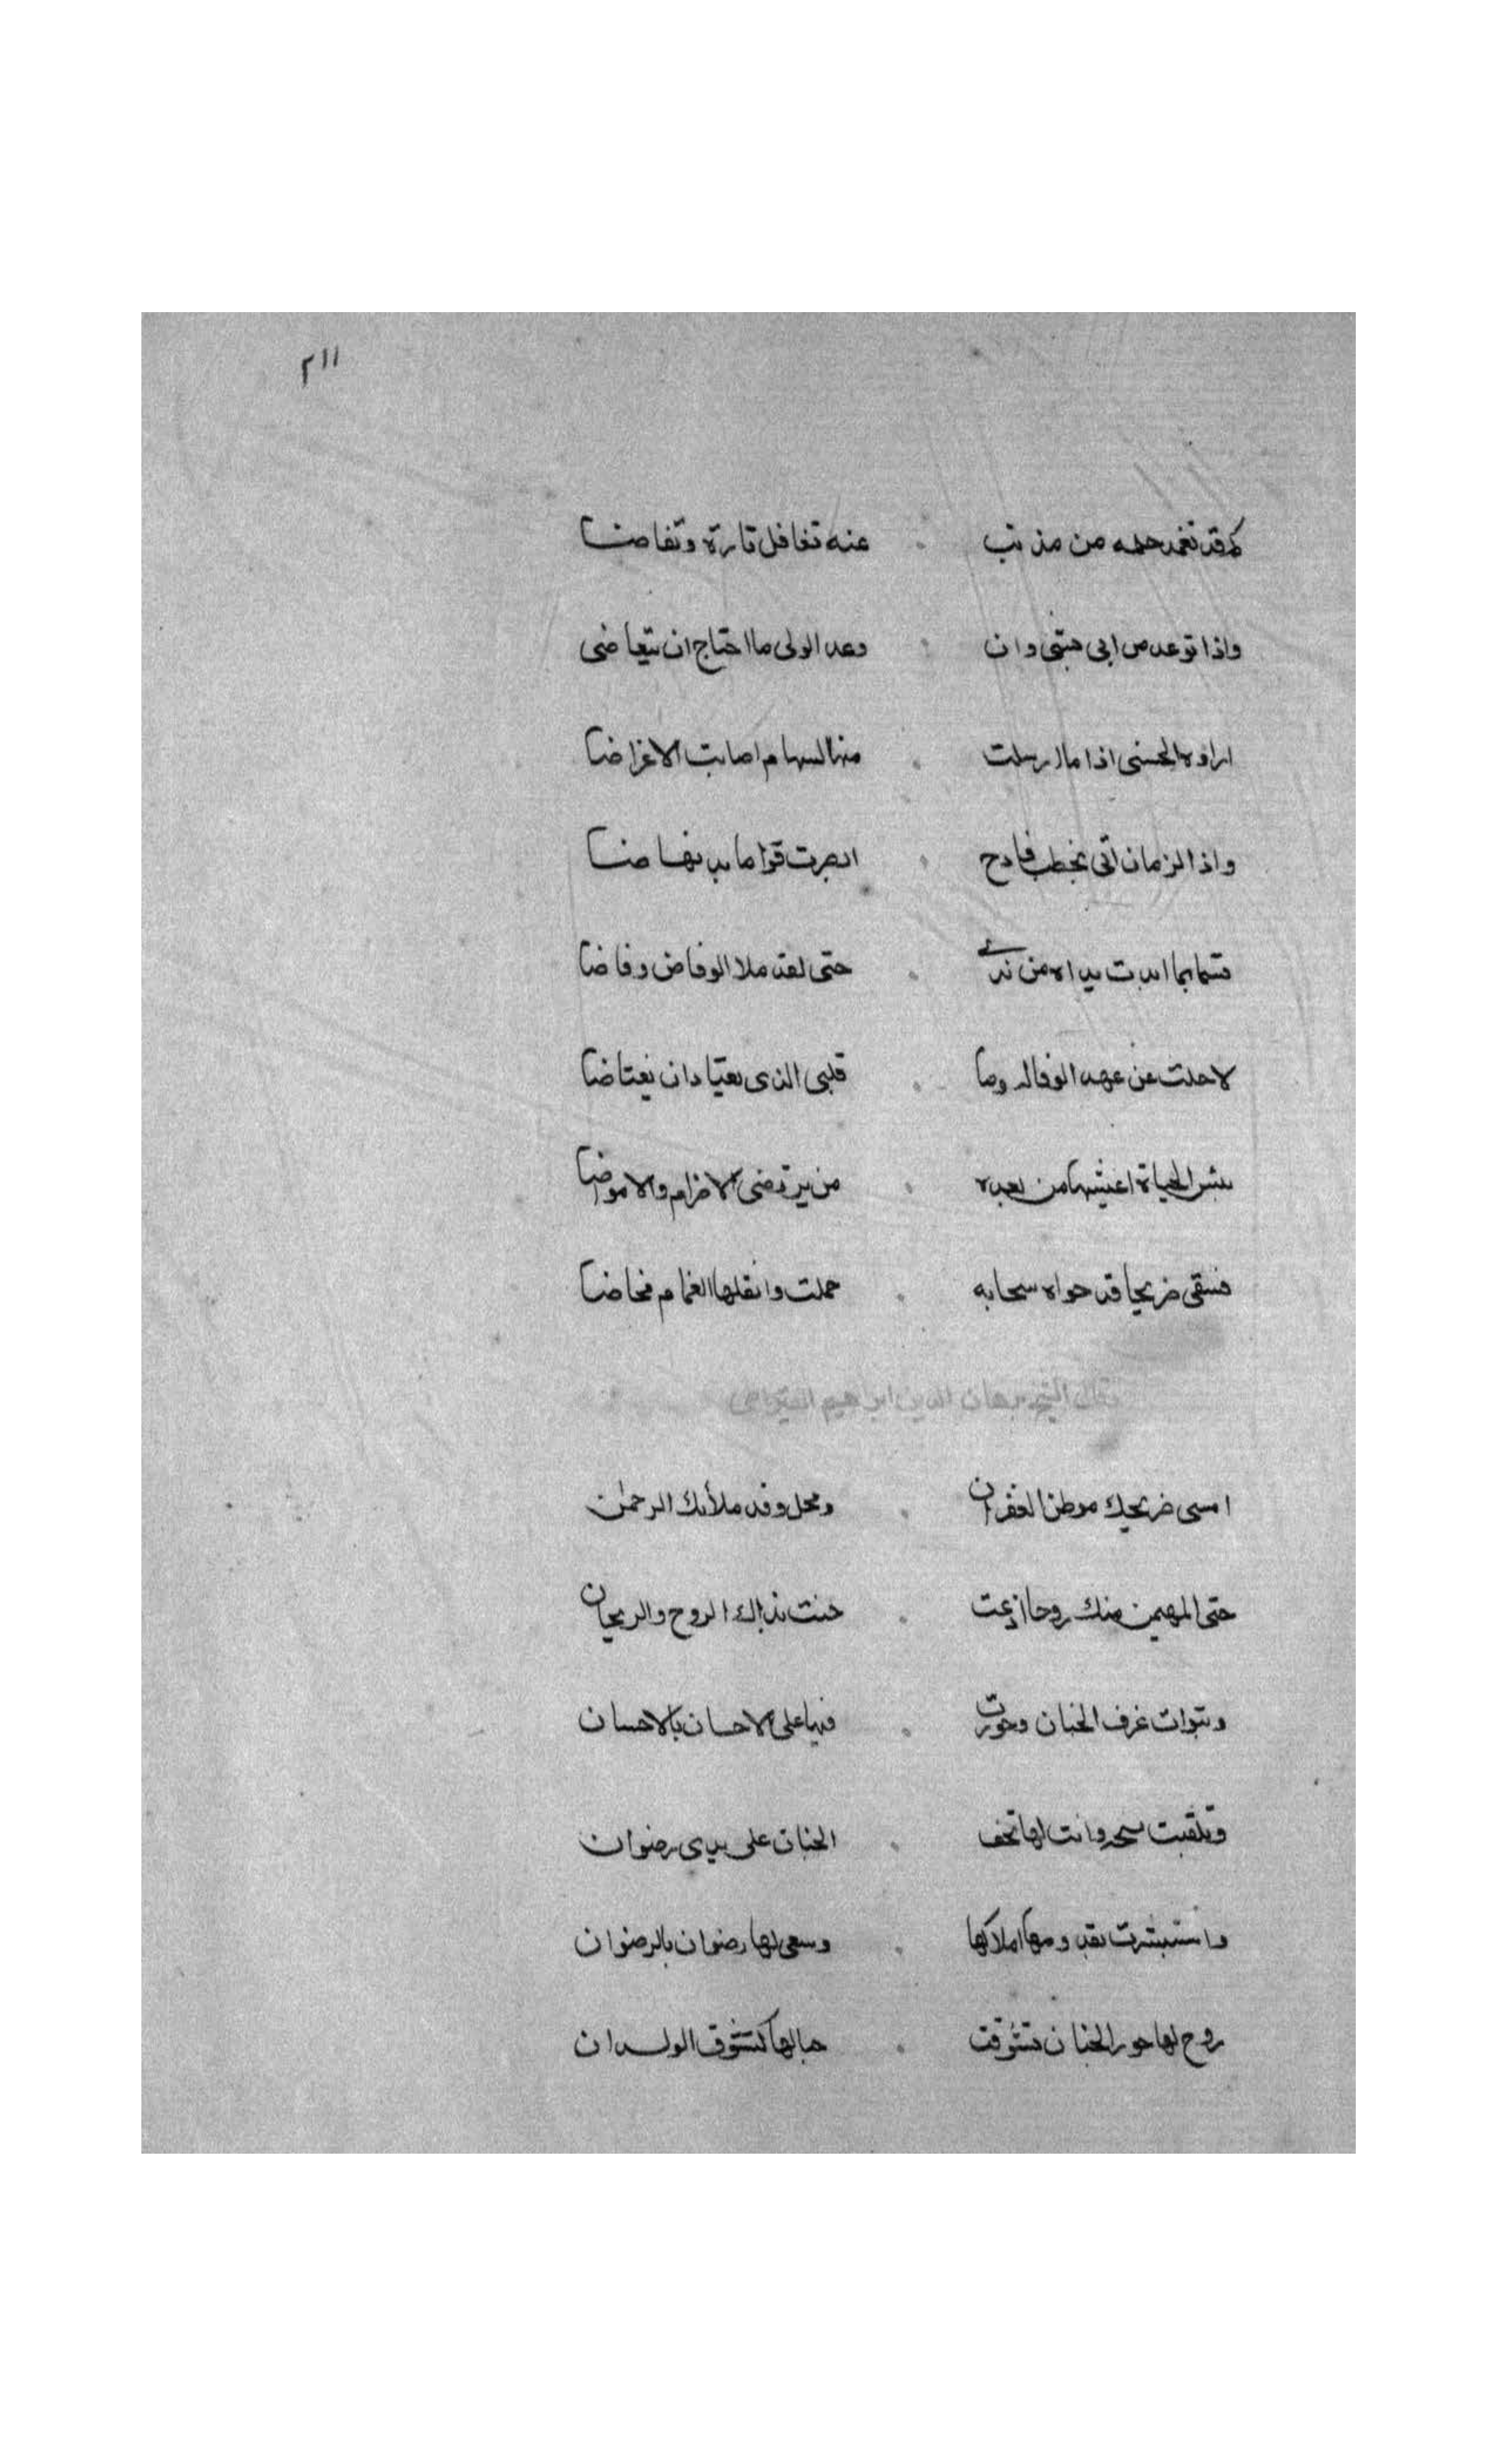 ٢١١
كم قد تغمد حلمه من مذنب عنه تغافل تارة وتغاضا
واذا توعد من ابى هبتى وان وعد الولى ما احتاج ان يتعاضى
اراوه الحسنى اذا ما ارسلت منها السهام اصابت الاغراضا
واذا الزمان اتى بخطب فادح ابصرت قراما به نهاضا
قسما بما ابدت يداه من ندى حتى لقد ملا الوفاض وفاضا
لا حلت عن عهد الوفا له وما قلبى الذى يعتاد ان يعتاضا
بشر الحياة اعيشها من بعده من يرتضى الاضرام والامراضا
فسقى ضريحا قد حواه سحابه حملت واثقلها الغمام مخاضا
وقال الشيخ برهان الدين ابراهيم القيراطى
امسى ضريحك موطن الغفران ومحل وفد ملائك الرحمن
حتى المهيمن منك روحا ازمعت حنت بذاك الروح والريحان
وتبوات غرف الجنان وجوزت فيها على الاحسان بالاحسان
وتلقيت بتحف الجنان على يدى رضوان
واستبشرت بقدومها املاكها وسعى لها رضوان بالرضوان
روح لها حور الجنان تشوقت حبا لها كتشوق الولدان